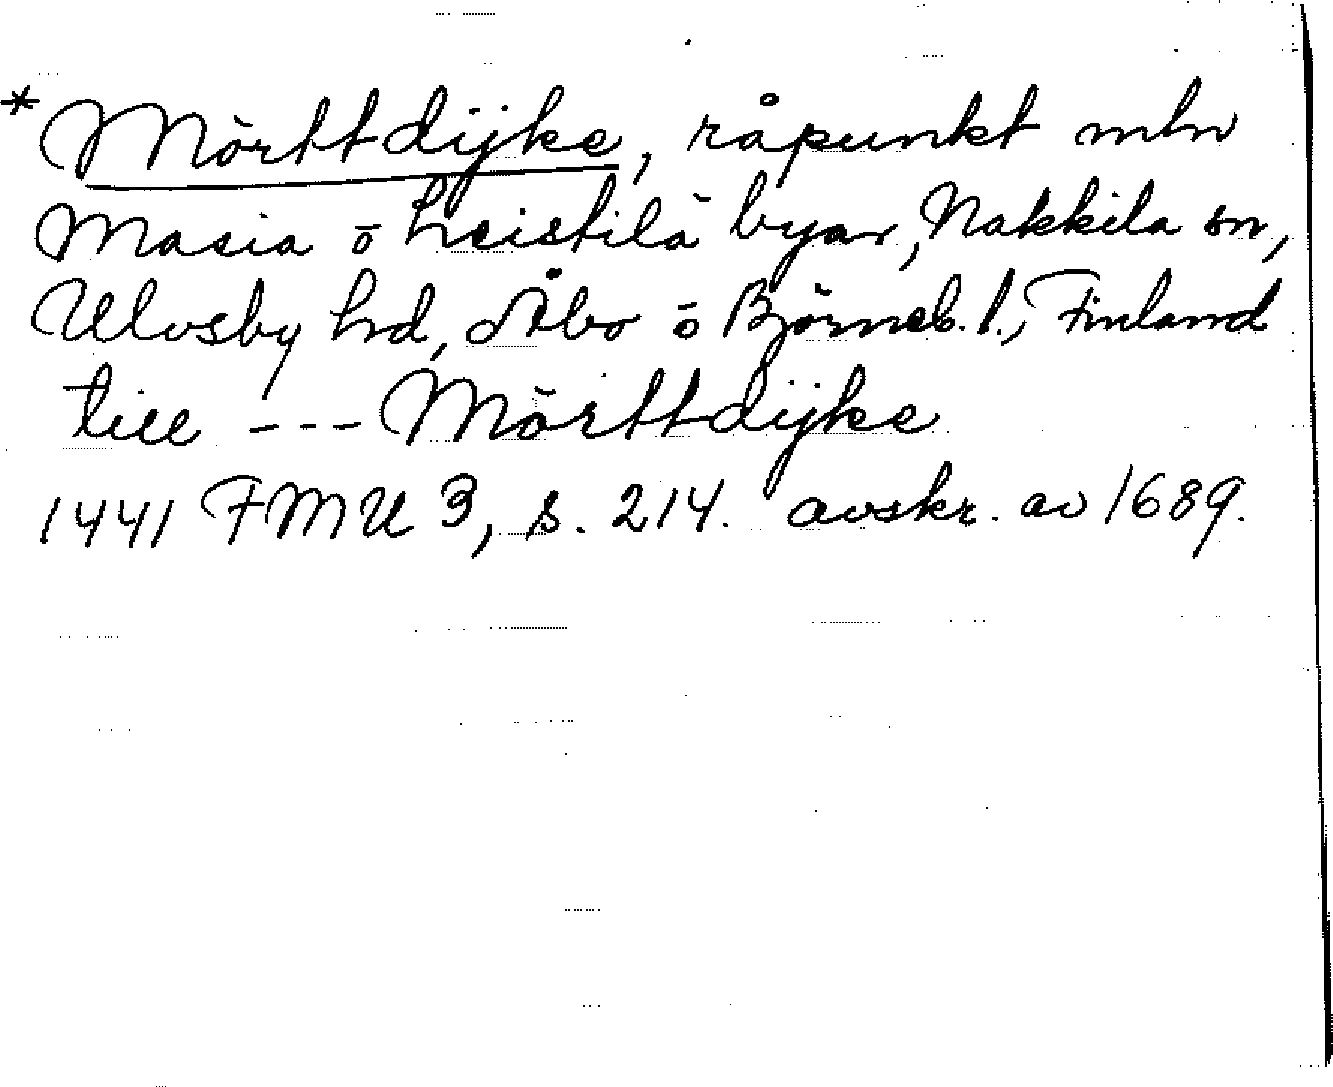 *Mörttdijke, råpunkt mln
Masia ō Leistilä byar, Nakkila sn,
Ulvsby hd, Åbo ō Björneb. l., Finland
till --- Mörttdijke
1441 FMU 3, s. 214. avskr. av 1689.